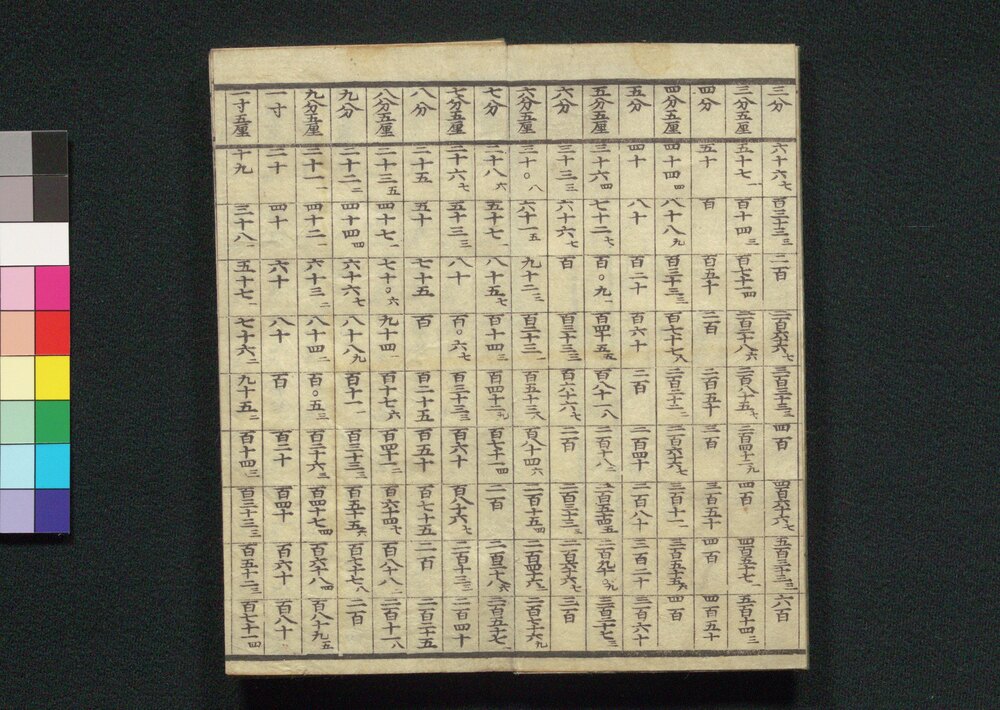 三分 六十六七 百三十三三 二百 二百六十六七 三百三十三三 四百 四百六十六七 五百三十三三 六百
三分五厘 五十七一 百十四三 百七十一四 二百二十八六 二百八十五七 三百四十二九 四百 四百五十七一 五百十四三
四分 五十 百 百五十 二百 二百五十 三百 三百五十 四百 四百五十
四分五厘 四十四四 八十八九 百三十三三 百七十七八 二百二十二二 二百六十六七 三百十一一 三百五十五六 四百
五分 四十 八十 百二十 百六十 二百 二百四十 二百八十 三百二十 三百六十
五分五厘 三十六四 七十二七 百〇九一 百四十五五 百八十一八 二百十八二 二百五十四五 二百九十〇九 三百二十七三
六分 三十三三 六十六七 百 百三十三三 百六十六七 二百 二百三十三三 二百六十六七 三百
六分五厘 三十〇八 六十一五 九十二三 百二十三一 百五十三八 百八十四六 二百十五四 二百四十六二 二百七十六九
七分 二十八六 五十七一 八十五七 百十四三 百四十二九 百七十一四 二百 二百二十八六 二百五十七一
七分五厘 二十六七 五十三三 八十 百〇六七 百三十三三 百六十 百八十六七 二百十三三 二百四十
八分 二十五 五十 七十五 百 百二十五 百五十 百七十五 二百 二百二十五
八分五厘 二十三五 四十七一 七十〇六 九十四一 百十七六 百四十一二 百六十四七 百八十八二 二百十一八
九分 二十二二 四十四四 六十六七 八十八九 百十一一 百三十三三 百五十五六 百七十七八 二百
九分五厘 二十一一 四十二一 六十三二 八十四二 百〇五三 百二十六三 百四十七四 百六十八四 百八十九五
一寸 二十 四十 六十 八十 百 百二十 百四十 百六十 百八十
一寸五厘 十九 三十八一 五十七一 七十六二 九十五二 百十四三 百三十三三 百五十二三 百七十一四